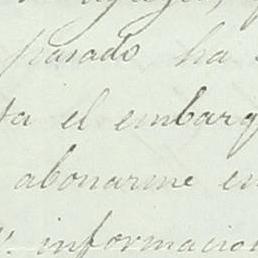 pasado ha
el embarq
abonarme en
informacion